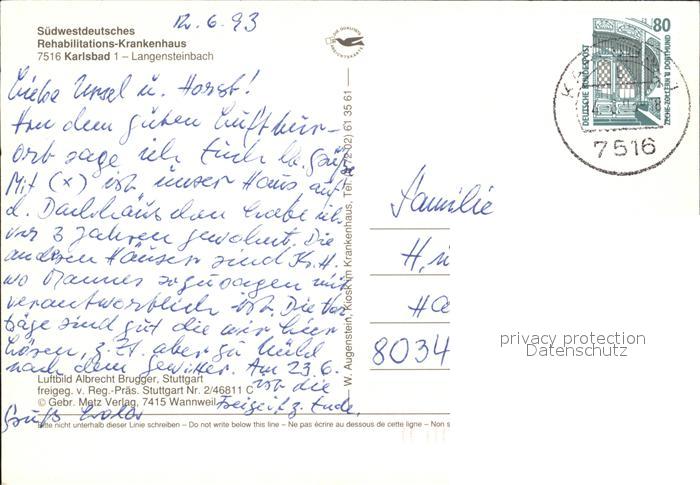 12.6.93
Südwestdeutsches
Rehabilitations-Krankenhaus
7516 Karlsbad 1 – Langensteinbach
Liebe Ursel u. Horst!
dem guten Luftkur-
ort sage ich Euch lb. Grüße
Mit (x) ist unser Haus auf
d. Dachhaus den habe ich
vor 3 Jahren gewohnt. Die
anderen Häuser sind Kr. H.
wo Mannes sozusagen mit
verantwortlich ist. Die Vor
träge sind gut die wir hier
hören, z. Zt. aber zu kühl
nach dem Gewitter. Am 23.6.
ist die
Freizeit z. Ende.
Gruß
Luftbild Albrecht Brugger, Stuttgart
freigeg. v. Reg.-Präs. Stuttgart Nr. 2/46811 C
© Gebr. Metz Verlag, 7415 Wannweil
Bitte nicht unterhalb dieser Linie schreiben – Do not write below this line – Ne pas écrire au dessous de cette ligne – Non s
W. Augenstein, Kiosk im Krankenhaus, Tel. (0 72 02) 61 35 61
80
DEUTSCHE BUNDESPOST
ZECHE ZOLLERN II DORTMUND
7516
Familie
H
Ha
8034
privacy protection
Datenschutz